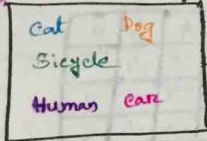 Cat Dog
Bicycle
Human Car